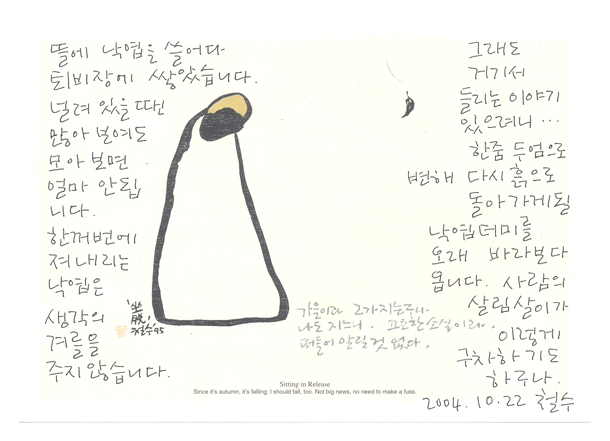 뜰에 낙엽을 쓸어다
퇴비장에 쌓았습니다.
널려 있을 땐
많아 보여도
모아 보면
얼마 안됩
니다.
한꺼번에
져 내리는
낙엽은
생각의
겨를을
주지 않습니다.
그래도
거기서
들리는 이야기
있으려니 …
한줌 두엄으로
변해 다시 흙으로
돌아가게 될
낙엽더미를
오래 바라보다
옵니다. 사람의
살림살이가
이렇게
구차하기도
하구나.
2004. 10. 22 철수
'坐
脫'
철수'95
가을이라 그가 지는구나.
나도 지느니. 고요한 소식이라.
떠들어 알릴 것 없다.
Sitting in Release
Since it's autumn, it's falling; I should fall, too. Not big news, no need to make a fuss.